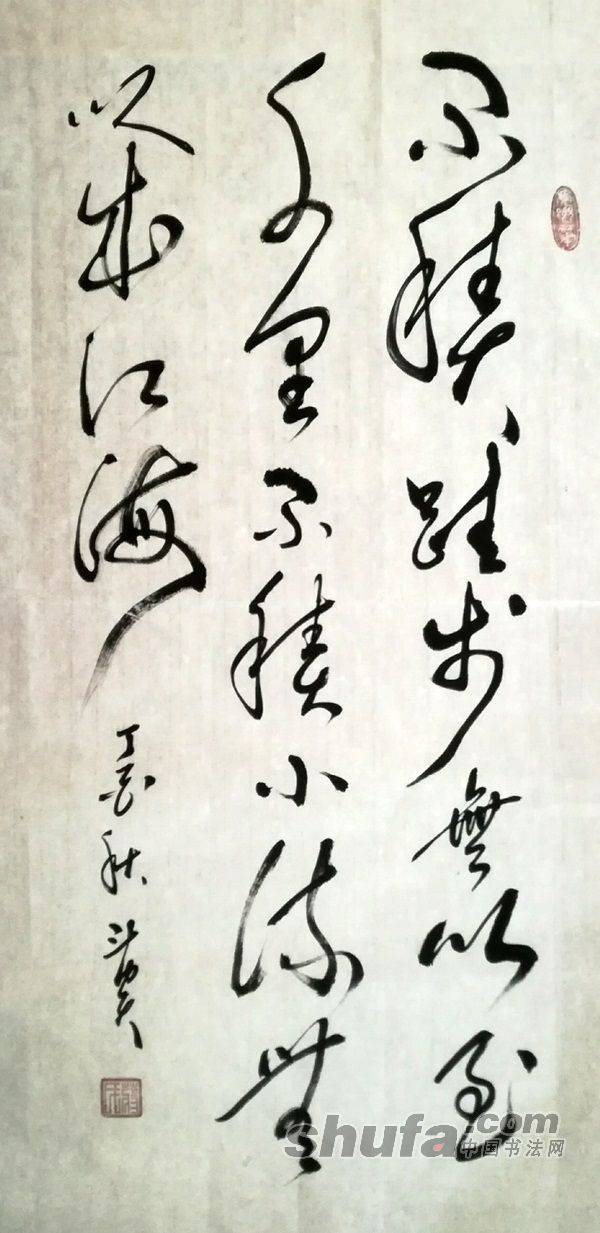 不積跬步無以至
千里不積小流無
以成江海
丁酉秋
shufa.com
中国书法网